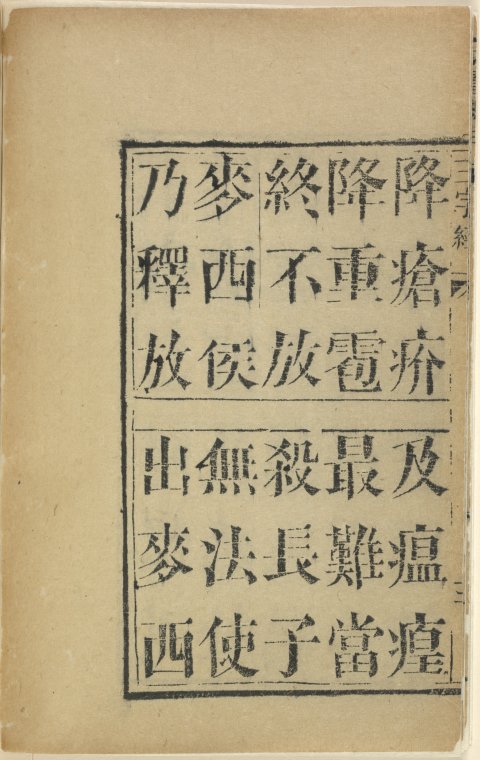 三字經
三
降瘡疥 及瘟㾮
降重雹 最難當
終不放 殺長子
麥西侯 無法使
乃釋放 出麥西